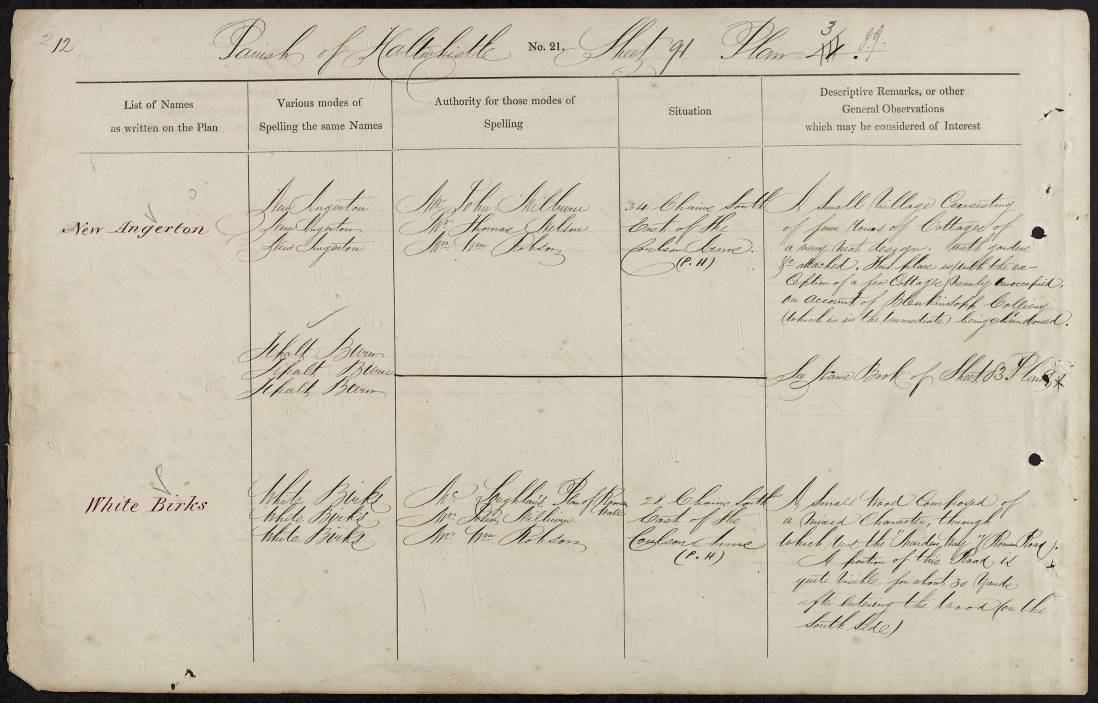 12
Parish of Haltwhistle No. 21. Sheet 91 Plan 3
List of Names
as written on the Plan
Various modes of
Spelling the same Names
Authority for those modes of
Spelling
Situation
Descriptive Remarks, or other
General Observations
which may be considered of Interest
New Angerton
New Angerton
New Angerton
New Angerton
Mr. John Milburn
Mr. Thomas
Mr. Wm. Robson
34 Chains South
East of the
(P.H)
A Small Village Consisting
of four Rows of Cottages of
a very neat design. with gardens
&c attached. This place is (with the ex-
ception of a few Cottages) nearly unoccupied.
on account of Blenkinsopp Colliery
(which is in the immediate) being abandoned.
Tipalt Burn
Tipalt Burn
Tipalt Burn
See Name Book of Sheet 83 Plan
White Birks
White Birks
White Birks
White Birks
Mc Laughlan's Plan of Roman
Wall
Mr. John Milburn
Mr. Wm. Robson
28 Chains South
East of the
(P.H)
A Small Wood Composed of
a mixed Character, through
which the "Maiden Way" (Roman Road).
A portion of this Road is
quite visible for about 30 Yards
after entering the Wood (on the
South Side)